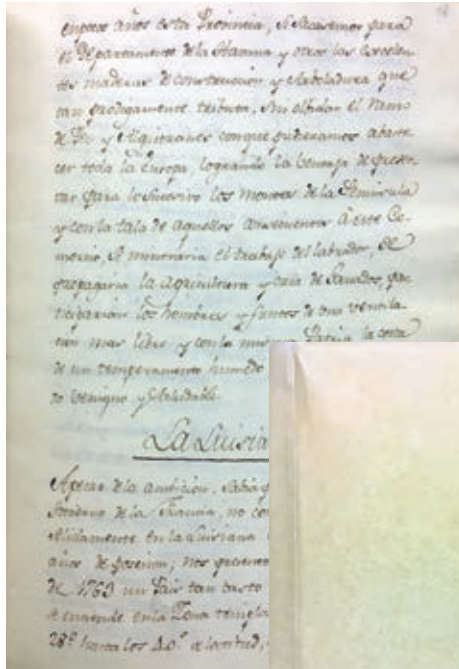 años esta Provincia, si sacasemos para
el Departamento de la Havana y otros las excelen
tes maderas de construccion y arboladura que
tan prodigamente tributa, sin olvidar el Ramo
de Pez y Alquitranes conque pudieramos abaste
cer toda la Europa, logrando la ventaja de
para lo sucesivo los montes de la Peninsula
y con la tala de aquellos à este Co
mercio, el trabajo del labrador, se
propagaria la agricultura y cria de Ganados, par
ticiparian los hombres y frutos de una ventila
cion mas libre y con la Patria la
de un temperamento humedo
benigno y saludable.
La Luisia
Apesar de la ambicion, sabio
Govierno de la Francia, no
solidamente en la Luisiana
años de posesion, nos
de 1763 un Pais tan basto
se extiende en la Zona templa
28º hasta los 40º de latitud,